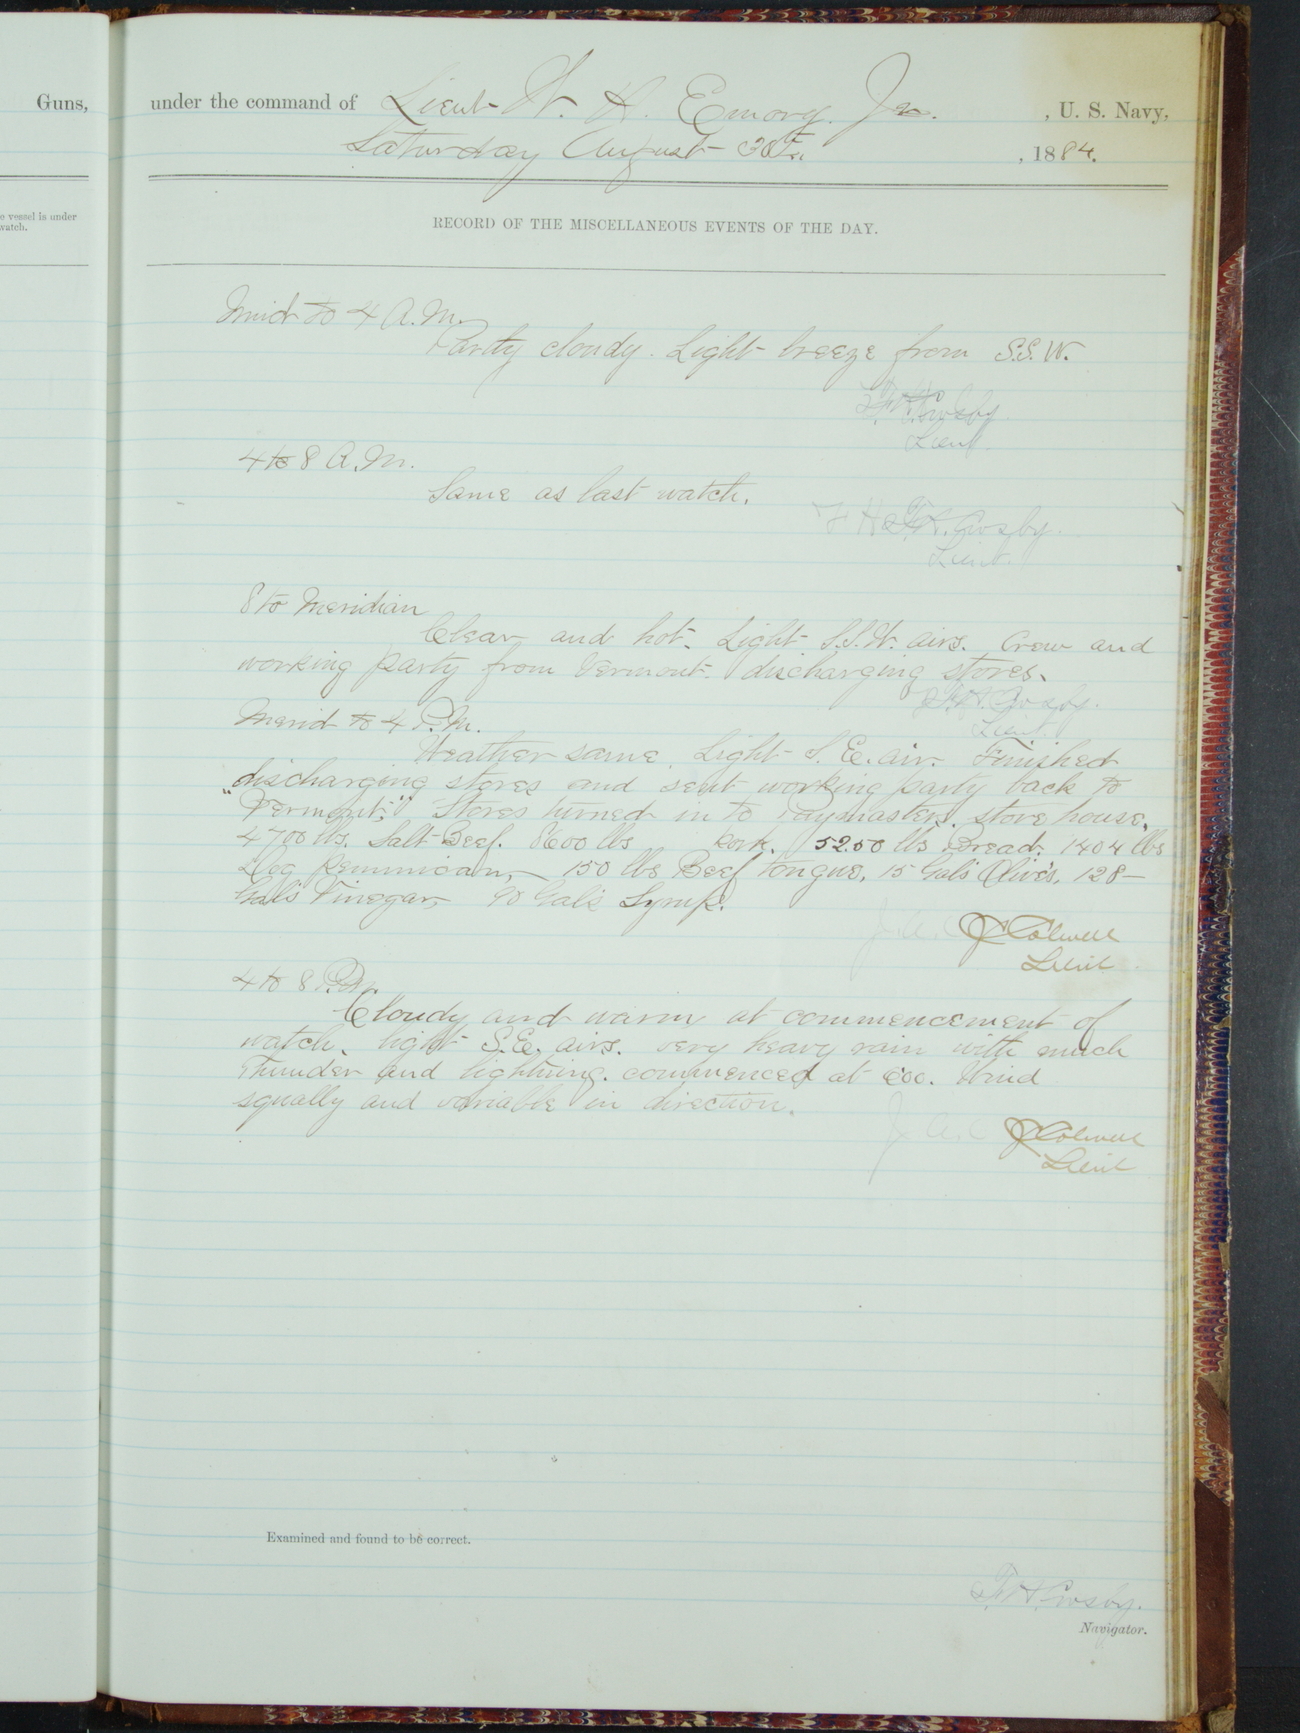 Guns,
e vessel is under
watch.
under the command of Lieut W. H. Emory. Jr. , U. S. Navy,
Saturday August 30th. , 1884.
RECORD OF THE MISCELLANEOUS EVENTS OF THE DAY.
Mid to 4 A.M.
Partly cloudy. Light breeze from S.S.W.
F. H. Crosby
Lieut.
4 to 8 A.M.
Same as last watch.
F. H. Crosby.
Lieut.
8 to Meridian
Clear and hot. Light S.S.W. airs. Crew and
working party from Vermont. discharging stores.
F. H. Crosby.
Lieut.
Merid to 4 P.M.
Weather same. Light S.E. air. Finished
discharging stores and sent working party back to
"Vermont." Stores turned in to Paymasters. store house,
4700 lbs. Salt Beef. 8600 lbs Pork. 5250 lbs Bread. 1404 lbs
Dog pemmican, 150 lbs Beef tongue, 15 Gals Olives, 128
Gals Vinegar, 90 Gals Syrup.
J. C. Colwell
Lieut
4 to 8 P.M.
Cloudy and warm at commencement of
watch. light S.E. airs. very heavy rain with much
Thunder and lightning. commenced at 6.00. Wind
squally and variable in direction.
J. C. Colwell
Lieut
Examined and found to be correct.
F. H. Crosby.
Navigator.